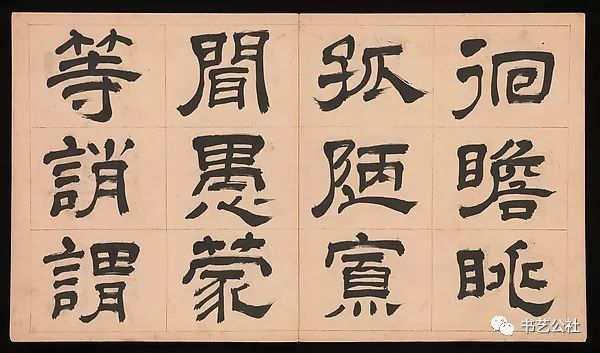 徊瞻眺
孤陋寡
聞愚蒙
等誚謂
书艺公社